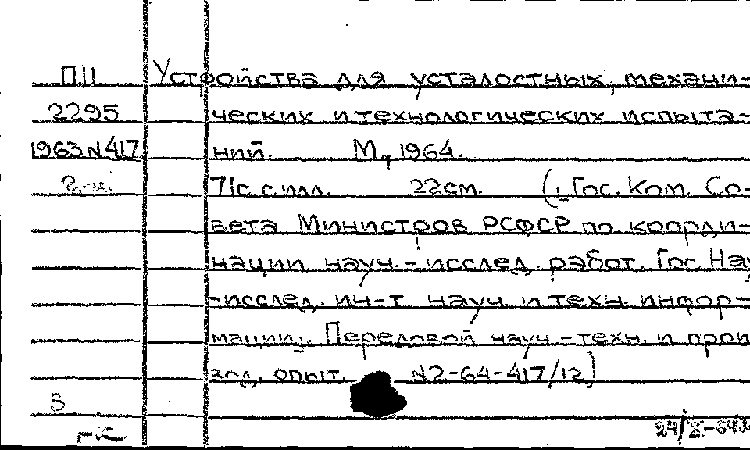 П11 Устройства для усталостных, механи-
2295 ческих и технологических испыта-
1963 N417 ний. М., 1964.
71с. с илл. 22см. (Гос. Ком. Со-
вета Министров РСФСР по коорди-
нации науч.-исслед. работ. Гос. Нау
-исслед. ин-т науч. и техн. инфор-
мации. Передовой науч.-техн. и прои
зод. опыт. N2-64-417/12)
3